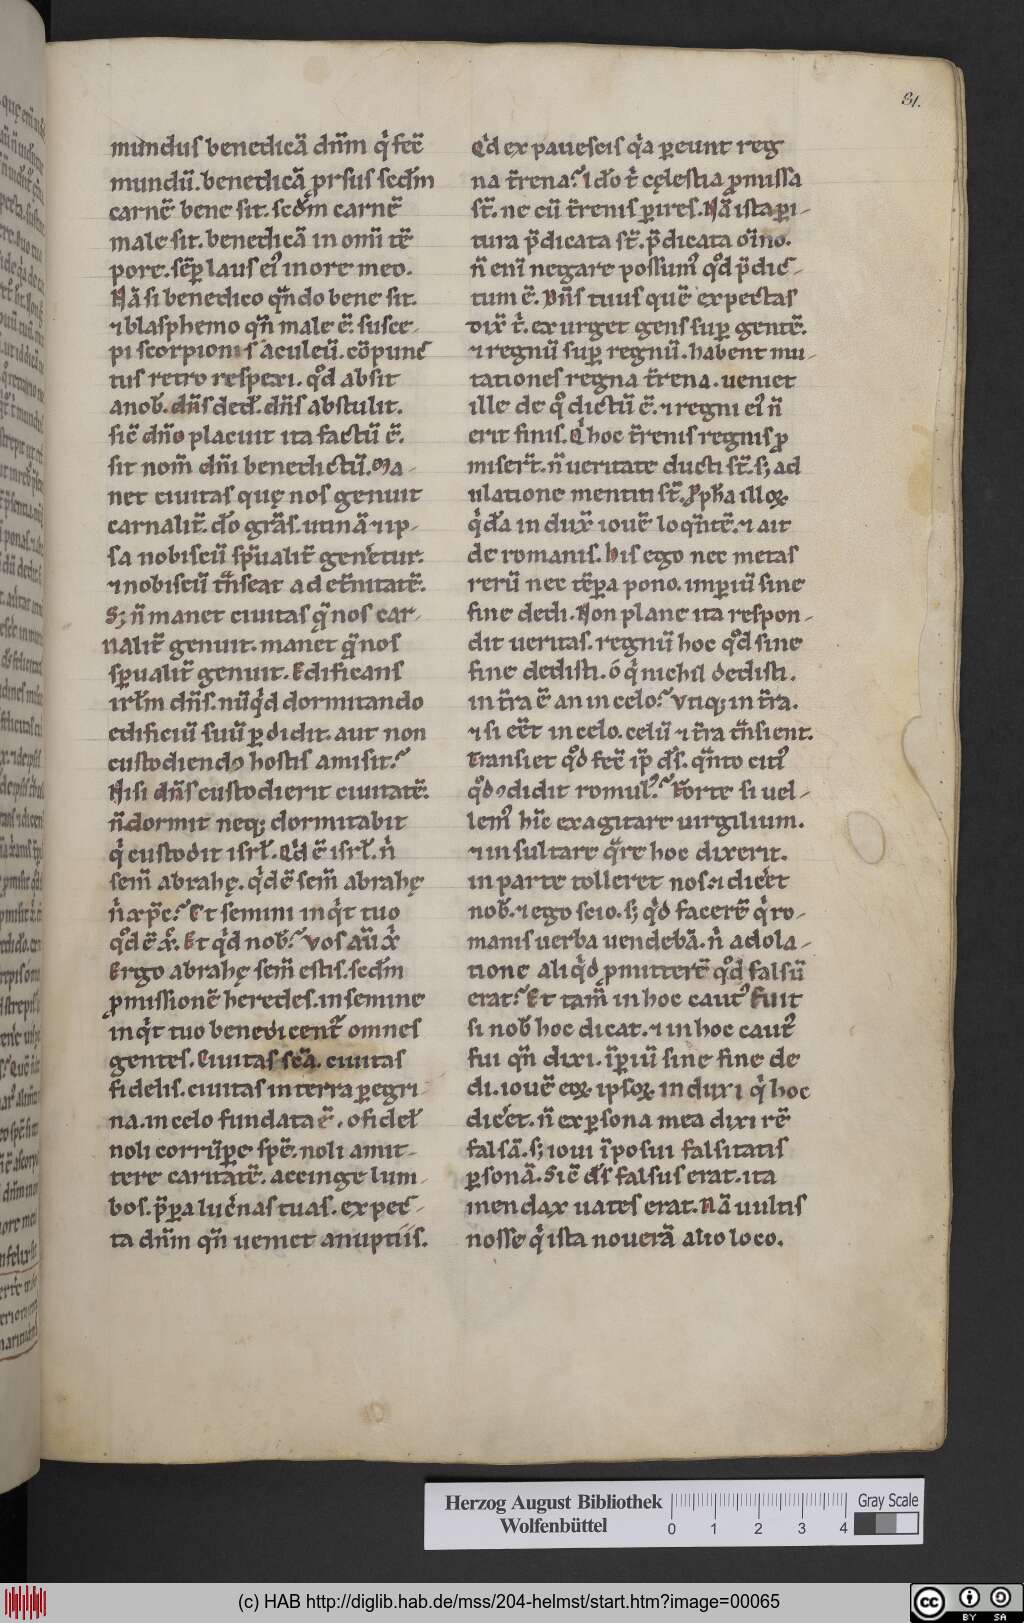 31.
mundus benedicā dnm̄ qͥ fec̄
mundū. benedicā ꝓrsus scd̄m
carnē bene sit. scd̄m carnē
male sit. benedicā in om̄i tē
pore. sēꝑ laus eiꝰ in ore meo.
Nā si benedico qn̄do bene sit.
⁊ blasphemo qn̄ male ē. susce-
pi scorpionis aculeū. cōpunc
tus retro respexi. qͦd absit
a nob̄. dn̄s ded̄. dn̄s abstulit.
sic̄ dn̄o placuit ita factū ē.
sit nom̄ dn̄i benedictū. Ma-
net ciuitas quę nos genuit
carnalit̄. dō grās. utinā ⁊ ip-
sa nobiscū sp̄ualit̄ genetur.
⁊ nobiscū tn̄seat ad et̄nitatē.
S; n̄ manet ciuitas q̄ nos car-
nalit̄ genuit. manet q̄ nos
sp̄ualit̄ genuit. Edificans
irl̄m dn̄s. nūqͥd dormitando
edificiū suū ꝑdidit. aut non
custodiendo hostis amisit?
Nisi dn̄s custodierit ciuitatē.
n̄ dormit neq; dormitabit
qͥ custodit isrł. Qͥd ē isrł. nͥ
sem̄ abrahę. qͥd ē sem̄ abrahę
nͥ xp̄c? Et semini inqͥt tuo
qͦd ē xp̄c. Et qͥd nob̄? Vos aū xͥ
Ergo abrahę sem̄ estis. scd̄m
ꝓmissionē heredes. in semine
inqͥt tuo benedicent̄ omnes
gentes. Ciuitas sc̄a. ciuitas
fidelis. ciuitas in terra ꝑegri
na. in celo fundata ē. o fidel̄
noli corrūpe spē. noli amit-
tere caritatē. accinge lum-
bos. p̄ꝑa luc̄nas tuas. expec-
ta dn̄m qn̄ ueniet a nuptiis.
Qͥd expauescis qͥa ꝑeunt reg
na t̄rena? Iđo tͥ cęlestia ꝓmissa
st̄. ne cū t̄renis ꝑires. Nā ista ꝑi-
tura p̄dicata st̄. p̄dicata oīno.
n̄ enī negare possumꝰ qͦd p̄dic-
tum ē. Dn̄s tuus quē expectas
dix̄ tͥ. exurget gens suꝑ gentē.
⁊ regnū suꝑ regnū. habent mu-
tationes regna t̄rena. ueniet
ille de qͦ dictū ē. ⁊ regni eiꝰ n̄
erit finis. Qͥ hoc t̄renis regnis ꝓ
miser̄t. n̄ ueritate ducti st̄. s; ad
ulatione mentiti st̄. Ppħa illoꝝ
qͥda inducx̄ iouē loqn̄tē. ⁊ ait
de romanis. His ego nec metas
rerū nec tēꝑa pono. imꝑiū sine
fine dedi. Non plane ita respon-
dit ueritas. regnū hoc qͦd sine
fine dedisti. o qͥ nichil dedisti.
in t̄ra ē an in celo? Vtiq; in t̄ra.
⁊ si eēt in celo. celū ⁊ t̄ra tn̄sient.
Transiet qͦd fec̄ ip̄ ds̄. qn̄to citiꝰ
qͦd ꝯdidit romulꝰ? Forte si uel-
lemꝰ hic̄ exagitare uirgilium.
⁊ insultare qͣre hoc dixerit.
in parte tolleret nos. ⁊ diceret
nob̄. ⁊ ego scio. s; qͥd facerē qͥ ro-
manis uerba uendebā. nͥ adola-
tione aliqͥd ꝓmitterē qͦd falsū
erat? Et tam̄ in hoc cautꝰ fuit
si nob̄ hoc dicat. ⁊ in hoc cautꝰ
fui qn̄ dixi. īꝑiū sine fine de
di. iouē eoꝝ ipsoꝝ induxi qͥ hoc
diceret. n̄ ex ꝑsona mea dixi rē
falsā. s; ioui īposui falsitatis
ꝑsonā. Sic̄ ds̄ falsus erat. ita
mendax uates erat. Nā uultis
nosse qͥ ista nouerā alio loco.
Herzog August Bibliothek
Wolfenbüttel
0 1 2 3 4
Gray Scale
(c) HAB http://diglib.hab.de/mss/204-helmst/start.htm?image=00065
cc BY SA